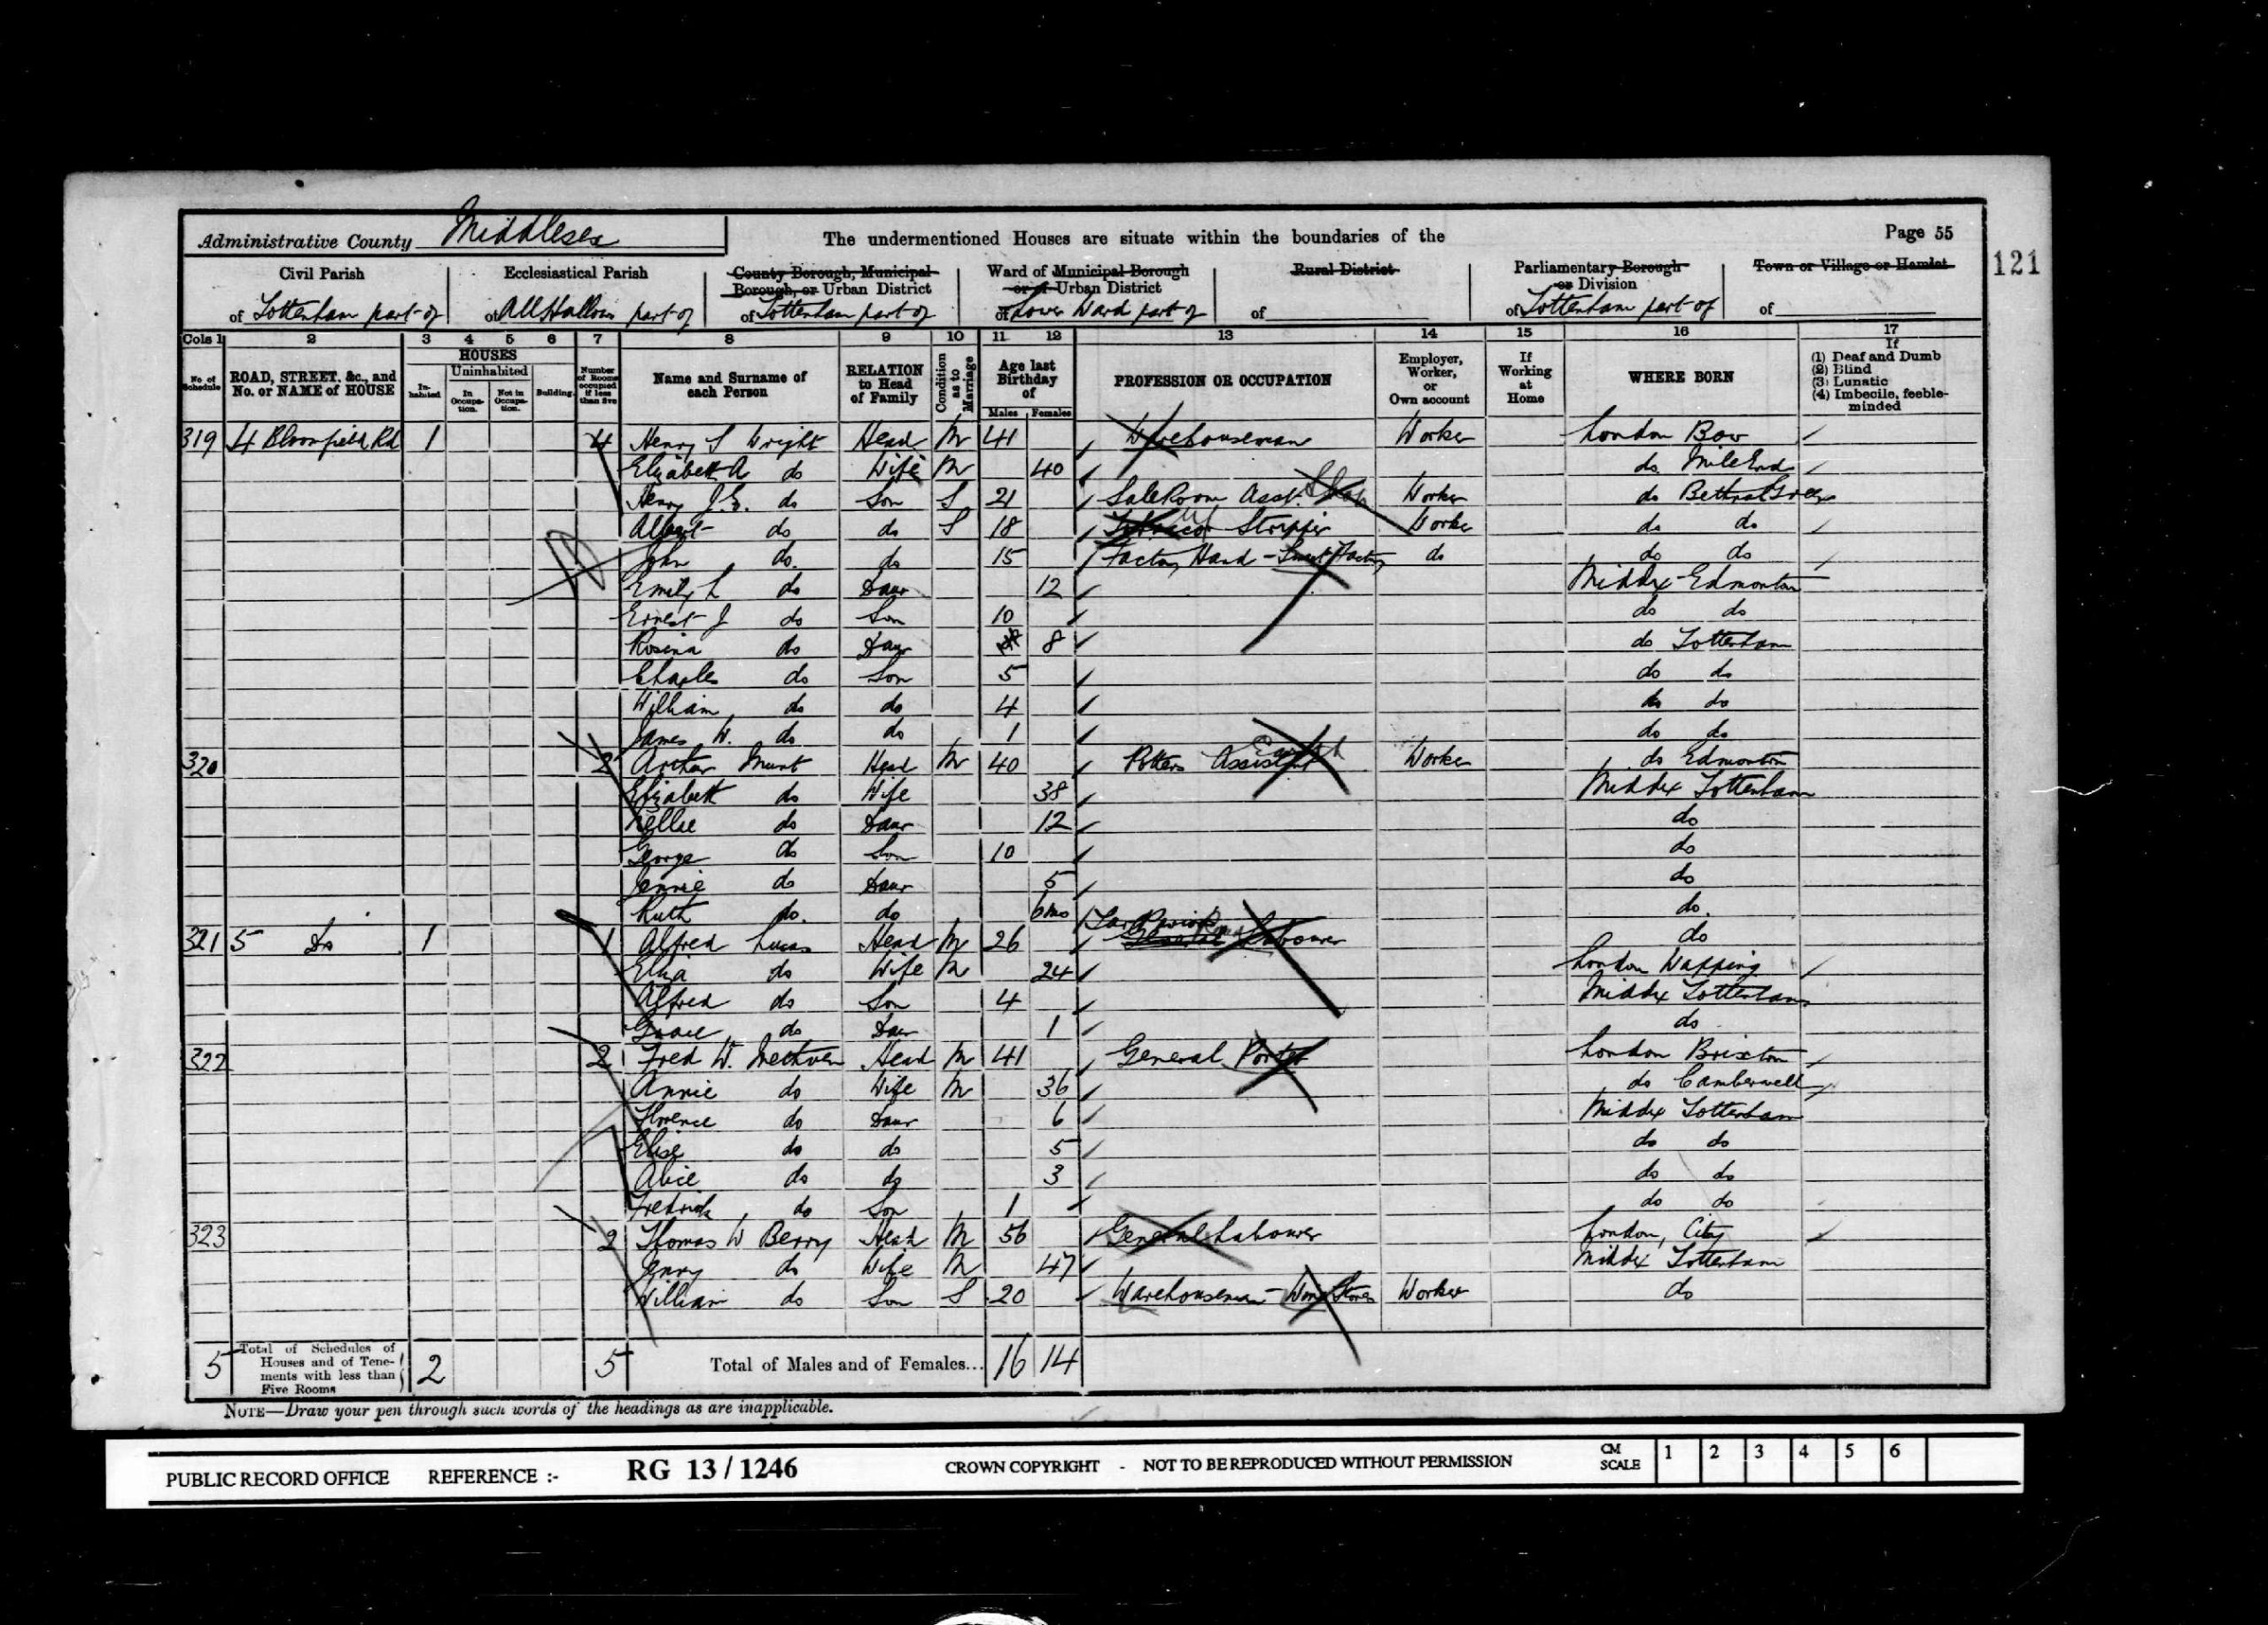 Administrative County Middlesex
The undermentioned Houses are situate within the boundaries of the
Page 55
121
Civil Parish of Tottenham part of
Ecclesiastical Parish of All Hallows part of
County Borough, Municipal Borough, or Urban District of Tottenham part of
Ward of Municipal Borough or of Urban District of Lower Ward part of
Rural District of
Parliamentary Borough or Division of Tottenham part of
Town or Village or Hamlet of
Cols 1 2 3 4 5 6 7 8 9 10 11 12 13 14 15 16 17
No. of Schedule
ROAD, STREET, &c., and No. or NAME of HOUSE
HOUSES
Inhabited
Uninhabited
In Occupation.
Not in Occupation.
Building.
Number of Rooms occupied if less than five
Name and Surname of each Person
RELATION to Head of Family
Condition as to Marriage
Age last Birthday of
Males Females
PROFESSION OR OCCUPATION
Employer, Worker, or Own account
If Working at Home
WHERE BORN
If
(1) Deaf and Dumb
(2) Blind
(3) Lunatic
(4) Imbecile, feeble-minded
319 4 Bloomfield Rd 1 4 Henry S Wright Head M 41 Warehouseman Worker London Bow
Elizabeth A do Wife M 40 do Mile End
Henry J.E. do Son S 21 Sale Room Asst. Worker do Bethnal Green
Albert do do S 18 Tobacco Stripper Worker do do
John do. do 15 Factory Hand - Factory do do do
Emily L do Daur 12 Middx Edmonton
Ernest J do Son 10 do do
Rosina do Daur 8 do Tottenham
Charles do Son 5 do do
William do do 4 do do
James W. do do 1 do do
320 2 Arthur Munt Head M 40 Potters Assistant Worker do Edmonton
Elizabeth do Wife 38 Middex Tottenham
Nellie do Daur 12 do
George do Son 10 do
Jennie do Daur 5 do
Ruth do. do 6mo do.
321 5 Do 1 1 Alfred Lucas Head M 26 General Labourer do
Eliza do Wife M 24 London Wapping
Alfred do Son 4 Middx Tottenham
Grace do Daur 1 do
322 2 Fred W. Methven Head M 41 General Porter London Brixton
Annie do Wife M 36 do Camberwell
Florence do Daur 6 Middx Tottenham
Elise do do 5 do do
Alice do do 3 do do
Fredrick do Son 1 do do
323 2 Thomas W Berry Head M 56 General Labourer London, City
Jenny do Wife M 47 Middx Tottenham
William do Son S 20 Warehouseman - Wine Stores Worker do
5 Total of Schedules of Houses and of Tenements with less than Five Rooms 2 5 Total of Males and of Females... 16 14
NOTE—Draw your pen through such words of the headings as are inapplicable.
PUBLIC RECORD OFFICE REFERENCE :- RG 13 / 1246 CROWN COPYRIGHT - NOT TO BE REPRODUCED WITHOUT PERMISSION CM SCALE 1 2 3 4 5 6